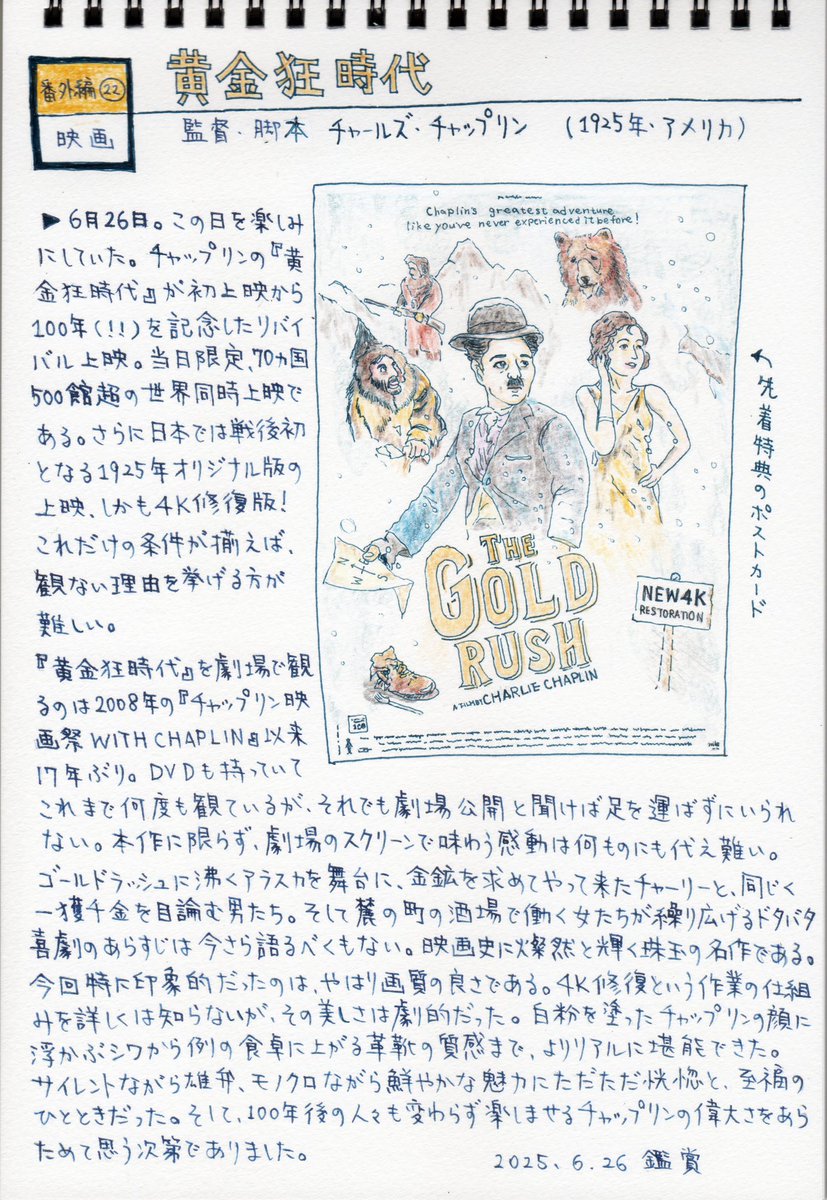 番外編㉒
映画
黄金狂時代
監督・脚本 チャールズ・チャップリン (1925年・アメリカ)
▶6月26日。この日を楽しみ
にしていた。チャップリンの『黄
金狂時代』が初上映から
100年(!!)を記念したリバイ
バル上映。当日限定、70ヵ国
500館超の世界同時上映で
ある。さらに日本では戦後初
となる1925年オリジナル版の
上映、しかも4K修復版!
これだけの条件が揃えば、
観ない理由を挙げる方が
難しい。
『黄金狂時代』を劇場で観
るのは2008年の『チャップリン映
画祭 WITH CHAPLIN』以来
17年ぶり。DVDも持っていて
これまで何度も観ているが、それでも劇場公開と聞けば足を運ばずにいられ
ない。本作に限らず、劇場のスクリーンで味わう感動は何ものにも代え難い。
ゴールドラッシュに沸くアラスカを舞台に、金鉱を求めてやって来たチャーリーと、同じく
一獲千金を目論む男たち。そして麓の町の酒場で働く女たちが繰り広げるドタバタ
喜劇のあらすじは今さら語るべくもない。映画史に燦然と輝く珠玉の名作である。
今回特に印象的だったのは、やはり画質の良さである。4K修復という作業の仕組
みを詳しくは知らないが、その美しさは劇的だった。白粉を塗ったチャップリンの顔に
浮かぶシワから例の食卓に上がる革靴の質感まで、よりリアルに堪能できた。
サイレントながら雄弁、モノクロながら鮮やかな魅力にただただ恍惚と、至福の
ひとときだった。そして、100年後の人々も変わらず楽しませるチャップリンの偉大さをあら
ためて思う次第でありました。
2025.6.26 鑑賞
Chaplin's greatest adventure
like you've never experienced it before!
N
W
S
THE
GOLD
RUSH
A FILM BY CHARLIE CHAPLIN
NEW4K
RESTORATION
↖先着特典のポストカード